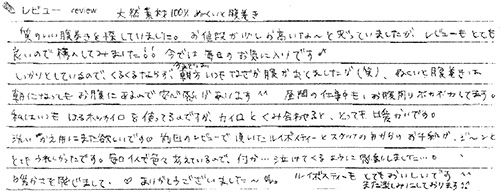 レビュー review 天然素材100% ぬくいと腹巻き
質のいい腹巻きを探していました。お値段が少しお高いな〜と思っていましたが、レビューもとても
良いので購入してみました!! 今では毎日のお気に入りです♪
しっかりとしているので、くるくるならず、朝方いつもなぜか腹が出てましたが(笑)、ぬくいと腹巻きは
朝になってもお腹にあるので安心感があります^^ 昼間の仕事中も、お腹周りポカポカしてます。
私はいつもはるホッカイロを使ってるのですが、カイロとくみ合わせると、とっても暖かいです。
洗いがえ用にまた欲しいです。前回のレビューで頂いたルイボスティーとスタッフの方からのお手紙が、ジーンと
とてもうれしかったです。毎日1人で寒さにたえているので、何か…泣けてくるように感動しました…。
お暖かさを感じまして、♡ありがとうございました〜 ルイボスティーもとてもおいしいです
また楽しみにしております